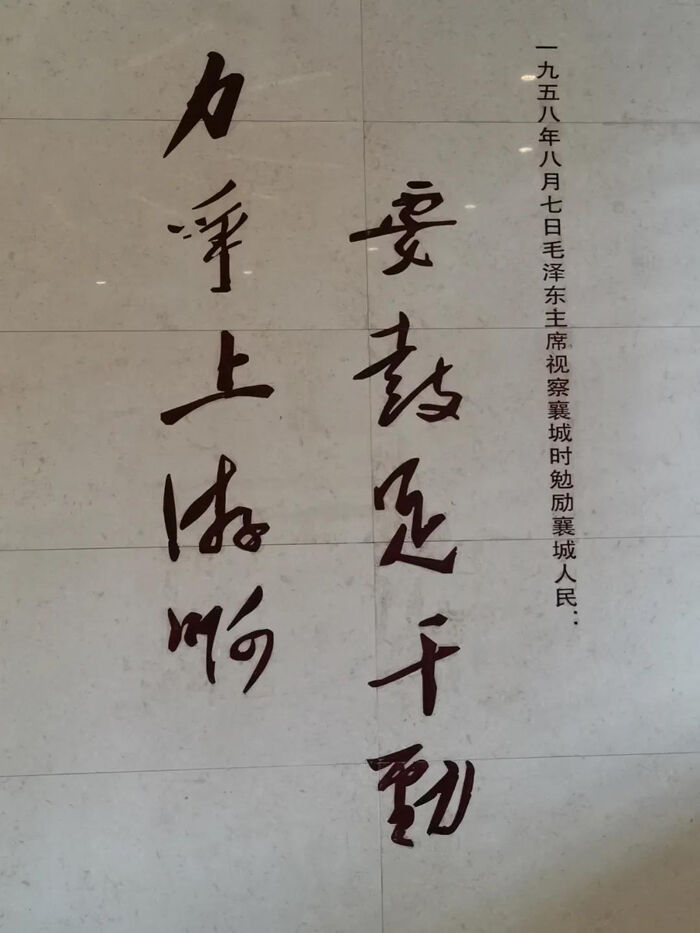 一九五八年八月七日毛泽东主席视察襄城时勉励襄城人民：
要鼓足干劲
力争上游啊